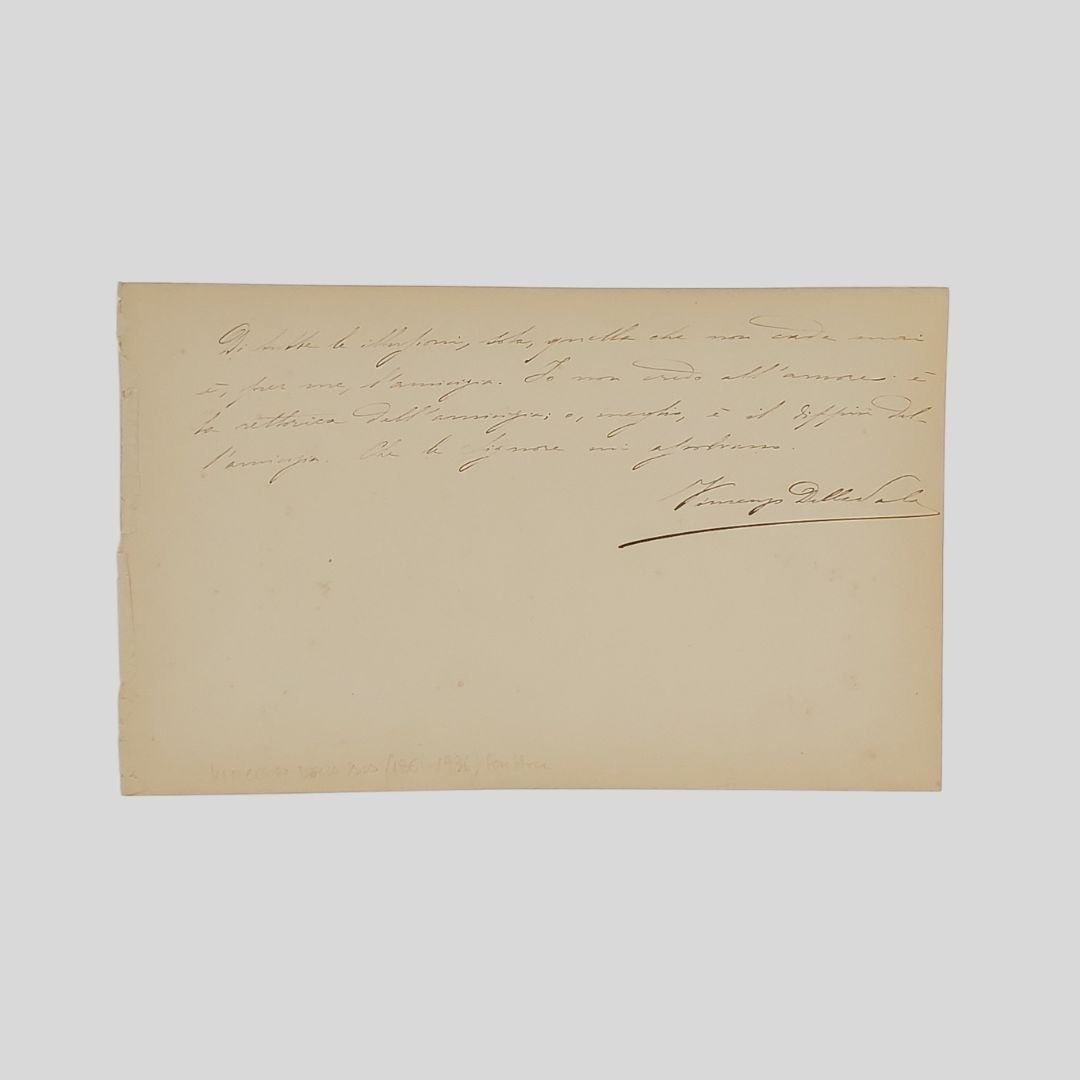 Di tutte le illusioni, sola, quella che non cade mai
è, per me, l'amicizia. Io non credo all'amore: è
la rettorica dell'amicizia; o, meglio, è il del-
l'amicizia. Che le signore mi
Vincenzo Della Sala
Vincenzo Della Sala 1936,